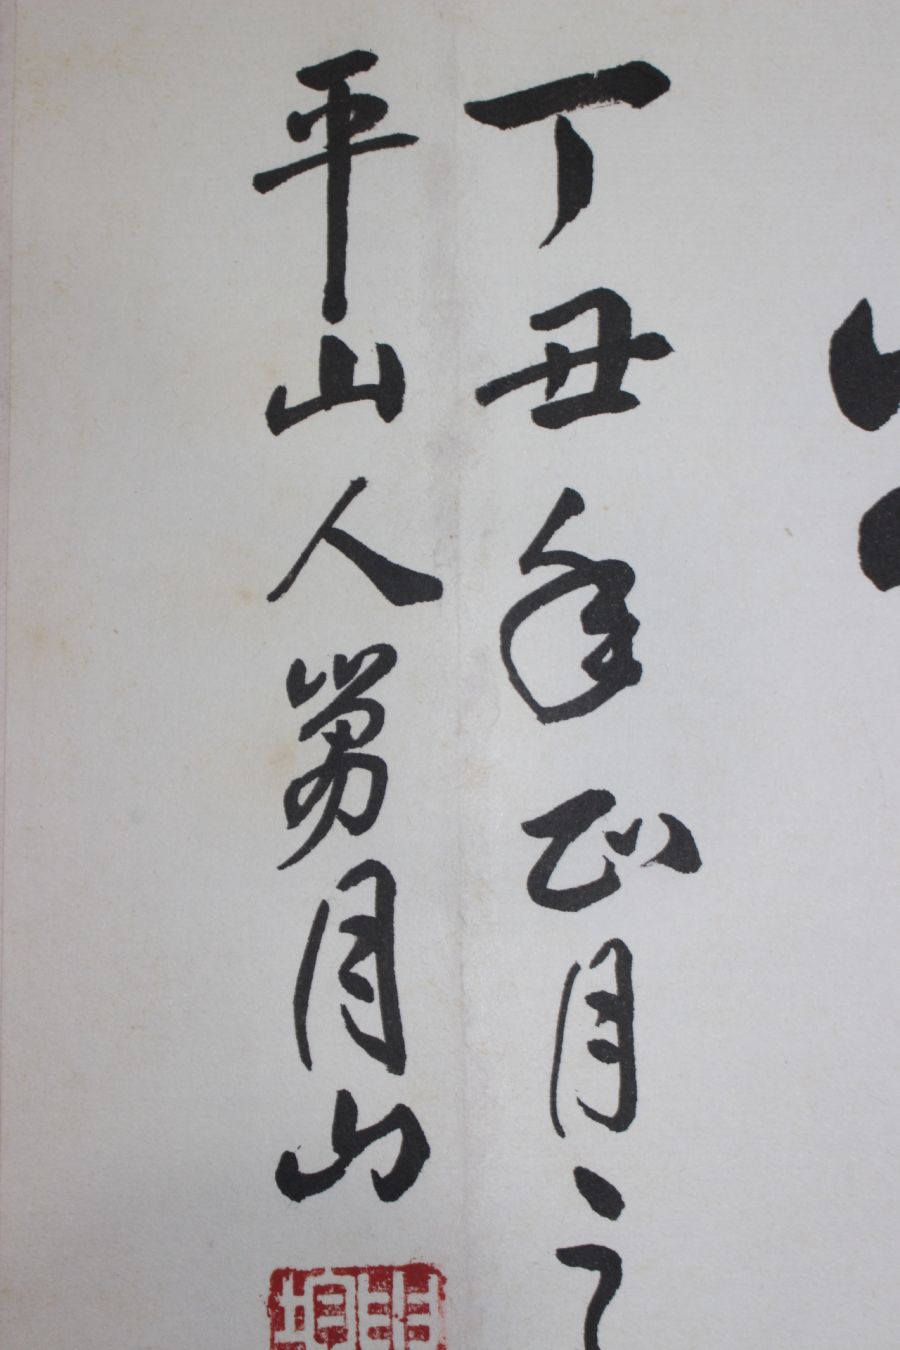 丁丑年正月
平山人月山